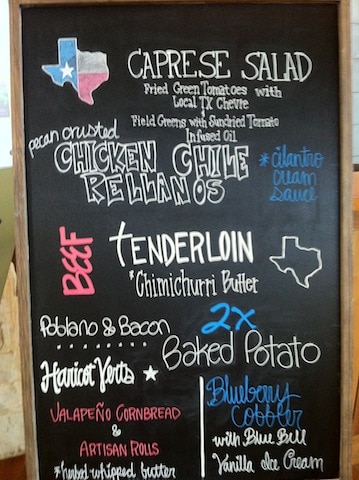 CAPRESE SALAD
Fried Green Tomatoes with
Local TX Chevre
Field Greens with Sundried Tomato
Infused Oil
pecan crusted
CHICKEN CHILE
RELLANOS
*cilantro
cream
sauce
BEEF
TENDERLOIN
*Chimichurri Butter
Poblano & Bacon
2X
Baked Potato
Haricot Verts ★
JALAPEÑO CORNBREAD
&
ARTISAN ROLLS
*herbed whipped butter
Blueberry
Cobbler
with Blue Bell
Vanilla Ice Cream